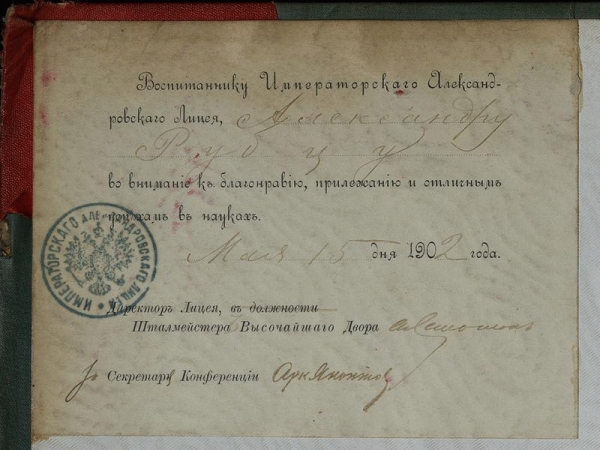 Воспитаннику Императорскаго Александ-
ровскаго Лицея, Александру
Рубцу
во вниманіе къ благонравію, прилежанію и отличнымъ
успѣхамъ въ наукахъ.
Мая 15 дня 1902 года.
ИМПЕРАТОРСКАГО АЛЕКСАНДРОВСКАГО ЛИЦЕЯ
Директоръ Лицея, въ должности
Шталмейстера Высочайшаго Двора
Секретаря Конференціи